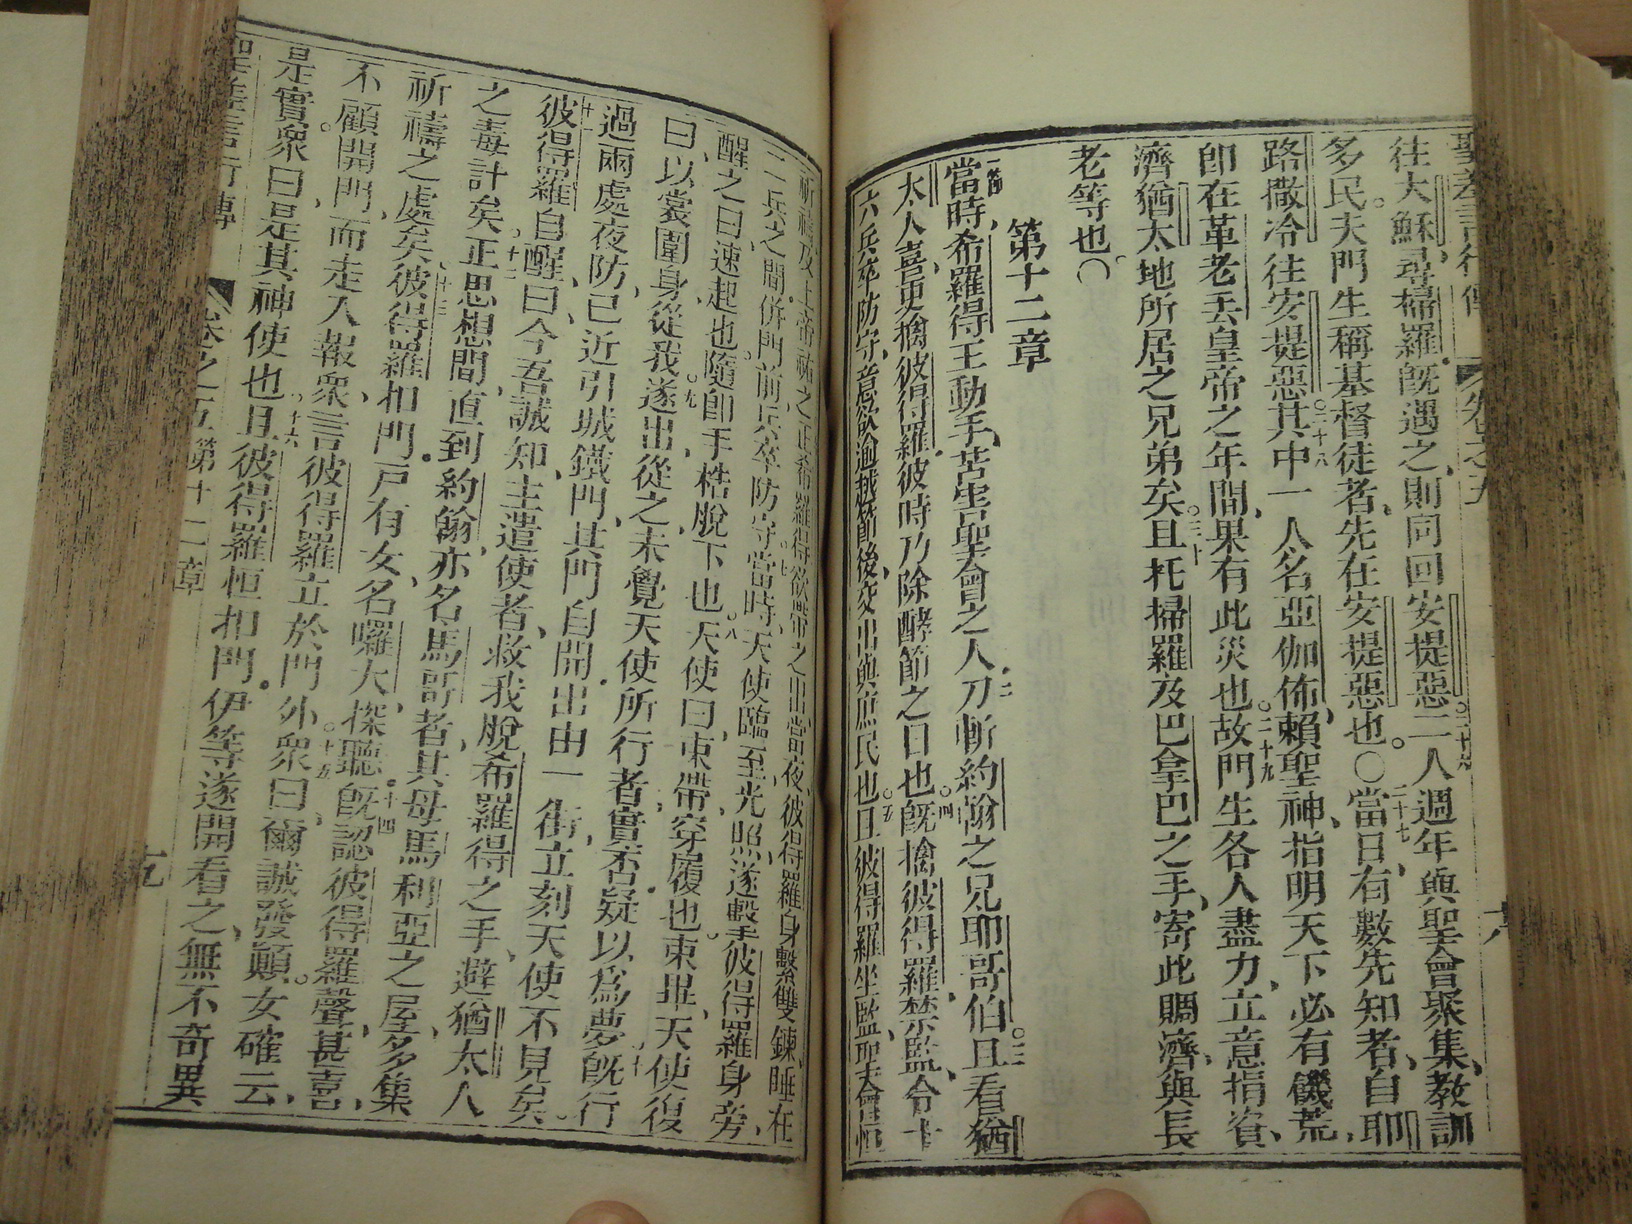 往大穌尋掃羅旣遇之則同回安提惡二人週年與聖會聚集教訓
多民夫門生稱基督徒者先在安提惡也○二十七當日有數先知者自耶
路撒冷往安提惡二十八其中一人名亞伽佈賴聖神指明天下必有饑荒
卽在革老丟皇帝之年間果有此災也二十九故門生各人盡力立意捐資
濟猶太地所居之兄弟矣三十且托掃羅及巴拿巴之手寄此賙濟與長
老等也○
第十二章
一節當時希羅得王動手苦害聖會之人二刀斬約翰之兄耶哥伯三且看猶
太人喜曰更擒彼得羅彼時乃除酵節之日也四旣擒彼得羅禁監令十
六兵卒防守意欲逾越節後交出與庶民也五且彼得羅坐監聖會恒
祈禱及上帝祐之正希羅得欲帶之出當夜彼得羅身繫雙鍊睡在
二兵之間併門前兵卒防守七當時天使臨至光照遂擊彼得羅身旁
醒之曰速起也隨卽手梏脫下也八天使曰束帶穿履也束畢天使復
曰以裳圍身從我九遂出從之未覺天使所行者實否疑以爲夢十旣行
過兩處夜防已近引城鐵門其門自開出由一街立刻天使不見矣
十一彼得羅自醒曰今吾誠知主遣使者救我脫希羅得之手避猶太人
之毒計矣十二正思想間直到約翰亦名馬哥者其母馬利亞之屋多集
祈禱之處矣十三彼得羅扣門戶有女名囉大探聽十四旣認彼得羅聲甚喜
不顧開門而走入報衆言彼得羅立於門外十五衆曰爾誠發顚女確云
是實衆曰是其神使也十六且彼得羅恒扣門伊等遂開看之無不奇異